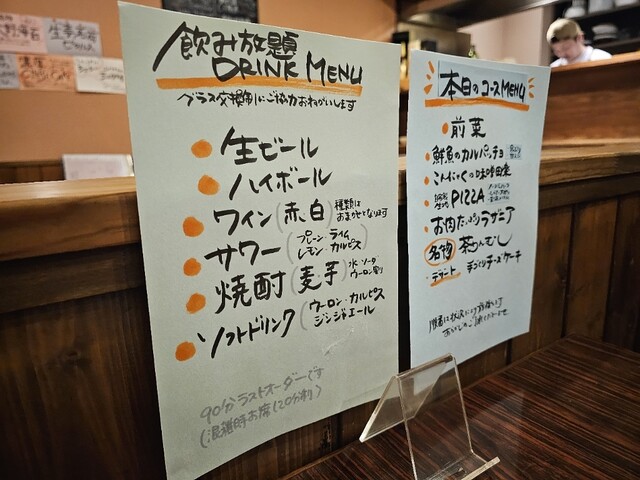 飲み放題
DRINK MENU
グラス交換制にご協力おねがいします
生ビール
ハイボール
ワイン(赤、白) 種類は
おまかせとなります
サワー(プレーン・ライム
レモン・カルピス)
焼酎(麦・芋) 水・ソーダ
ウーロン割り
ソフトドリンク(ウーロン・カルピス
ジンジャエール)
90分ラストオーダーです
(混雑時お席120分制)
本日のコースMENU
前菜
鮮魚のカルパッチョ
こんにゃくの味噌田楽
PIZZA
お肉たっぷりラザニア
名物 茶わんむし
デザート 手づくりチーズケーキ